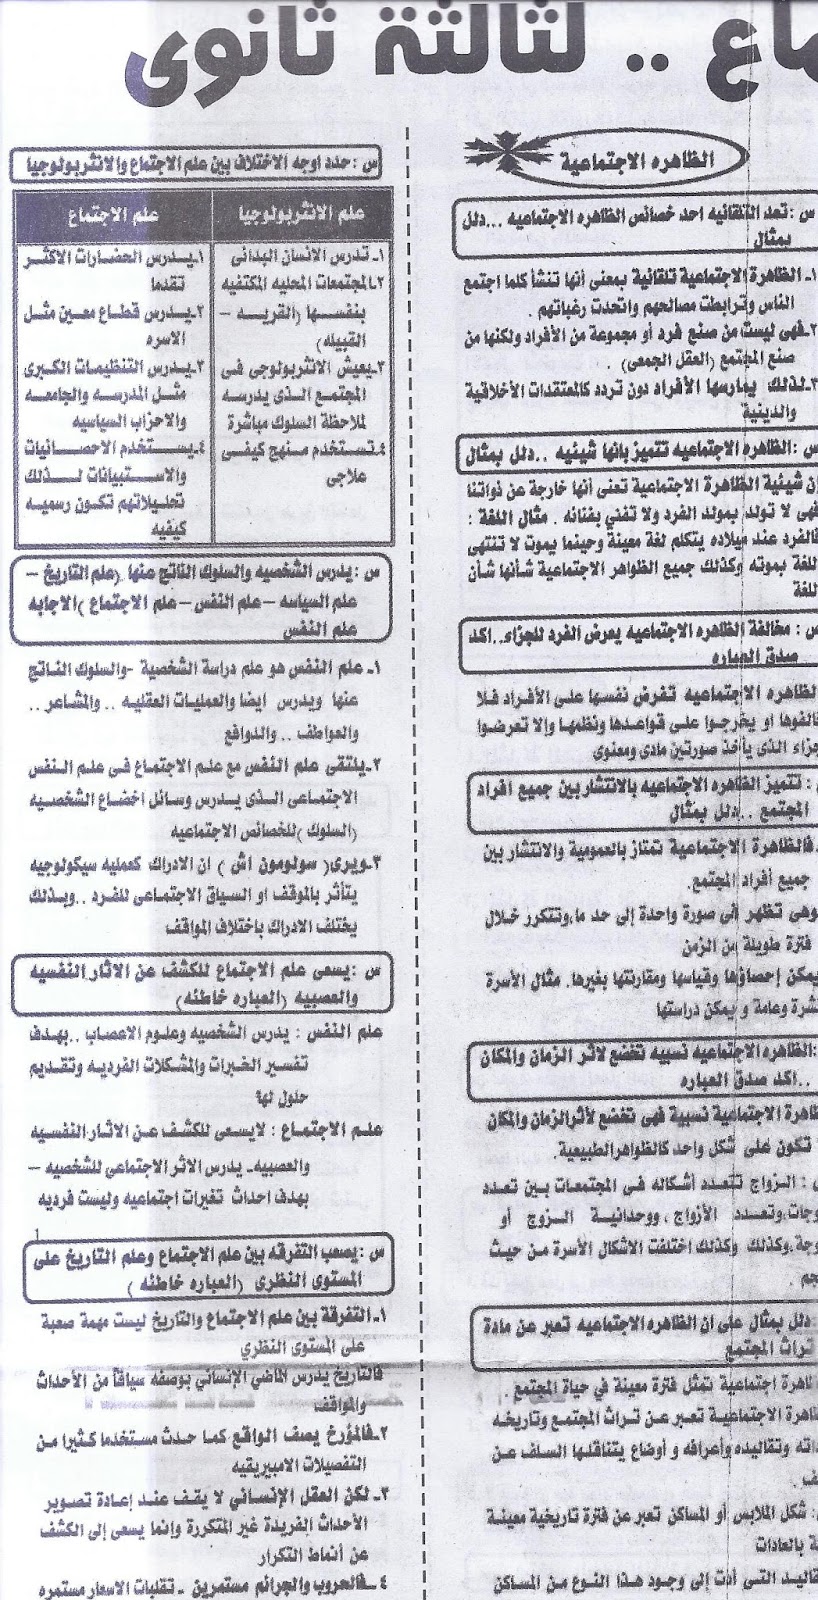 .. لثالثة ثانوى
الظاهره الاجتماعية
س : تعد التلقائيه احد خصائص الظاهره الاجتماعيه ...دلل
بمثال
١ـ الظاهرة الاجتماعية تلقائية بمعنى أنها تنشأ كلما اجتمع
الناس وترابطت مصالحهم واتحدت رغباتهم .
٢ـ فهى ليست من صنع فرد أو مجموعة من الأفراد ولكنها من
صنع المجتمع (العقل الجمعى) .
٣ـ لذلك يمارسها الأفراد دون تردد كالمعتقدات الأخلاقية
والدينية
س : الظاهره الاجتماعيه تتميز بانها شيئيه ..دلل بمثال
شيئية الظاهرة الاجتماعية تعنى أنها خارجة عن ذواتنا
فهى لا تولد بمولد الفرد ولا تفني بفنائه . مثال اللغة :
فالفرد عند ميلاده يتكلم لغة معينة وحينما يموت لا تنتهى
اللغة بموته وكذلك جميع الظواهر الاجتماعية شأنها شأن
اللغة
س : مخالفة الظاهره الاجتماعيه يعرض الفرد للجزاء..اكد
صدق العباره
الاجتماعيه تفرض نفسها على الأفراد فلا
او يخرجوا على قواعدها ونظمها وإلا تعرضوا
الذى يأخذ صورتين مادى ومعنوى
: تتميز الظاهره الاجتماعيه بالانتشار بين جميع افراد
المجتمع ..دلل بمثال
فالظاهرة الاجتماعية تمتاز بالعمومية والانتشار بين
جميع أفراد المجتمع.
وهى تظهر فى صورة واحدة إلى حد ما،وتتكرر خلال
فترة طويلة من الزمن
يمكن إحصاؤها وقياسها ومقارنتها بغيرها. مثال الأسرة
وعامة و يمكن دراستها
:الظاهره الاجتماعيه نسبيه تخضع لاثر الزمان والمكان
..اكد صدق العباره
الاجتماعية نسبية فهى تخضع لأثرالزمان والمكان
تكون على شكل واحد كالظواهرالطبيعية.
: الزواج تتعدد أشكاله فى المجتمعات بين تعدد
وتعدد الأزواج ،ووحدانية الزوج أو
وكذلك وكذلك اختلفت الاشكال الأسرة من حيث
:دلل بمثال على ان الظاهره الاجتماعيه تعبر عن مادة
تراث المجتمع
اجتماعية تمثل فترة معينة في حياة المجتمع .
الاجتماعية تعبر عن تراث المجتمع وتاريخه
وتقاليده وأعرافه و أوضاع يتناقلها السلف عن
: شكل الملابس أو المساكن تعبر عن فترة تاريخية معينة
بالعادات
التى أدت إلى وجود هذا النوع من المساكن
س : حدد اوجه الاختلاف بين علم الاجتماع والانثربولوجيا
علم الانثربولوجيا
١ـ تدرس الانسان البدائى
٢ـالمجتمعات المحليه المكتفيه
بنفسها (القريه –
القبيله)
٣ـيعيش الانثربولوجى فى
المجتمع الذى يدرسه
لملاحظة السلوك مباشرة
٤ـتستخدم منهج كيفى
علاجى
علم الاجتماع
١ـيدرس الحضارات الاكثر
تقدما
٢ـيدرس قطاع معين مثل
الاسره
٣ـيدرس التنظيمات الكبرى
مثل المدرسه والجامعه
والاحزاب السياسيه
٤ـيستخدم الاحصائيات
والاستبيانات لذلك
تحليلاتهم تكون رسميه
كيفيه
س :يدرس الشخصيه والسلوك الناتج عنها .(علم التاريخ –
علم السياسه – علم النفس – علم الاجتماع )الاجابه
علم النفس
١ـ علم النفس هو علم دراسة الشخصية -والسلوك الناتج
عنها ويدرس ايضا والعمليات العقليه .. والمشاعر ..
والعواطف .. والدوافع
٢ـيلتقى علم النفس مع علم الاجتماع فى علم النفس
الاجتماعى الذى يدرس وسائل اخضاع الشخصيه
(السلوك )للخصائص الاجتماعيه
٣ـويرى( سولومون اش ) ان الادراك كعمليه سيكولوجيه
يتأثر بالموقف او السياق الاجتماعى للفرد ..وبذلك
يختلف الادراك باختلاف المواقف
س :يسعى علم الاجتماع للكشف عن الاثار النفسيه
والعصبيه (العباره خاطئه)
علم النفس : يدرس الشخصيه وعلوم الاعصاب ..بهدف
تفسير الخبرات والمشكلات الفرديه وتقديم
حلول لها؟
علم الاجتماع : لايسعى للكشف عن الاثار النفسيه
والعصبيه- يدرس الاثر الاجتماعى للشخصيه –
بهدف احداث تغيرات اجتماعيه وليست فرديه
س :يصعب التفرقه بين علم الاجتماع وعلم التاريخ على
المستوى النظرى (العباره خاطئه )
١ـ التفرقة بين علم الاجتماع والتاريخ ليست مهمة صعبة
على المستوى النظري
فالتاريخ يدرس الماضي الإنساني بوصفه سياقاً من الأحداث
والمواقف
٢ـ فالمؤرخ يصف الواقع كما حدث مستخدما كثيرا من
التفصيلات الامبيريقيه
٣ـ لكن العقل الإنساني لا يقف عند إعادة تصوير
الأحداث الفريدة غير المتكررة وإنما يسعى إلى الكشف
عن أنماط التكرار
٤ ـ فالحروب والجرائم مستمرين - تقلبات الاسعار مستمره